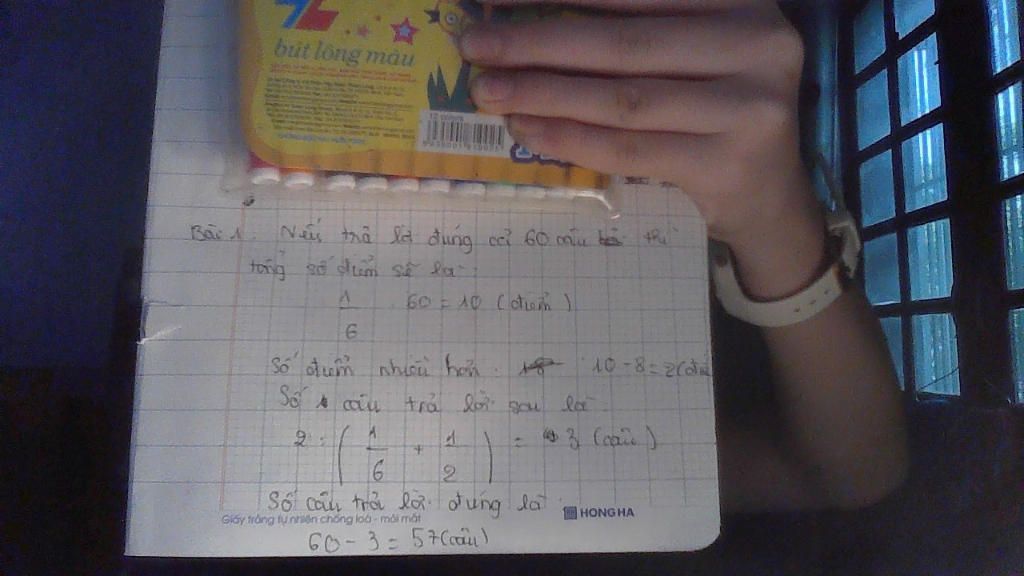 bút lông màu
Bài 1. Nếu trả lời đúng cả 60 câu thì
tổng số điểm sẽ là:
1/6 . 60 = 10 (điểm)
Số điểm nhiều hơn: 10 - 8 = 2 (đi
Số câu trả lời sai là:
2 : (1/6 + 1/2) = 3 (câu)
Số câu trả lời đúng là:
Giấy trắng tự nhiên chống loá - mỏi mắt
HONG HA
60 - 3 = 57 (câu)